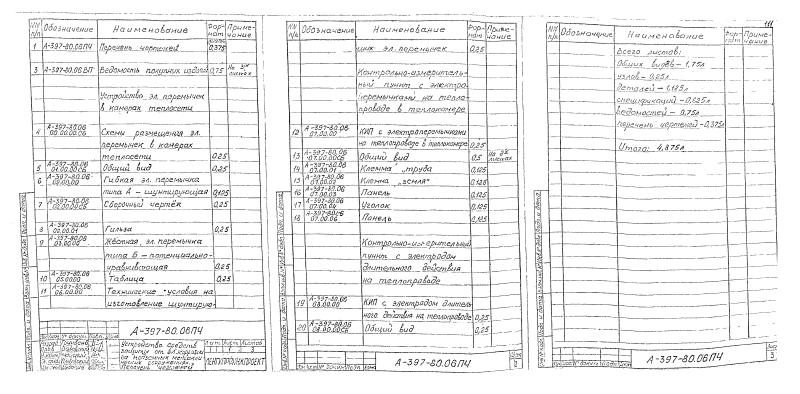 NN п/п Обозначение Наименование Формат Примечание
1 А-397-80.06ПЧ Перечень чертежей 0,375
3 А-397-80.06 ВП Ведомость покупных изделий 0,75 На листах
Устройство эл. перемычек
в камерах теплосети
4 А-397-80.06 00.00.00СБ Схемы размещения эл.
перемычек в камерах
теплосети 0.25
5 А-397-80.06 01.00.00СБ Общий вид 0,25
6 А-397-80.06 02.00.00 Гибкая эл. перемычка
типа А – шунтирующая 0,125
7 А-397-80.06 02.00.00СБ Сборочный чертёж 0,25
8 А-397-80.06 02.00.01 Гильза 0,25
9 А-397-80.06 03.00.00 Жёсткая эл. перемычка
типа Б – потенциало-
уравнивающая 0,25
10 А-397-80.06 05.00.00 Таблица 0,25
11 А-397-80.06 06.00.00 Технические условия на
изготовление шунтирую-
А-397-80.06ПЧ
Устройства средств
защиты от коррозии
Перечень чертежей
Лит Лист Листов
1 3
ЛЕНГИПРОИНЖПРОЕКТ
NN п/п Обозначение Наименование Формат Примечание
щих эл. перемычек 0,25
Контрольно-измеритель-
ный пункт с электро-
перемычками на тепло-
проводе в теплокамере
12 А-397-80.06 07.00.00 КИП с электроперемычками
на теплопроводе в теплокамере 0,25
13 А-397-80.06 07.00.00СБ Общий вид 0,5 На 2х листах
14 А-397-80.06 07.00.01 Клемма „труба" 0,125
15 А-397-80.06 07.00.02 Клемма „земля" 0,125
16 А-397-80.06 07.00.03 Панель 0,125
17 А-397-80.06 07.00.04 Уголок 0,125
18 А-397-80.06 07.00.06 Панель 0,125
Контрольно-измерительный
пункт с электродом
длительного действия
на теплопроводе
19 А-397-80.06 08.00.00 КИП с электродом длитель
ного действия на теплопроводе 0,25
20 А-397-80.06 08.00.00СБ Общий вид 0,25
А-397-80.06ПЧ
Лист
2
111
NN п/п Обозначение Наименование Формат Примечание
Всего листов:
Общих видов – 1,75л
узлов – 0,25л
деталей – 1,125л
спецификаций – 0,625л
ведомостей – 0,75л
перечень чертежей – 0,375л
Итого: 4,875л
А-397-80.06ПЧ
Лист
3